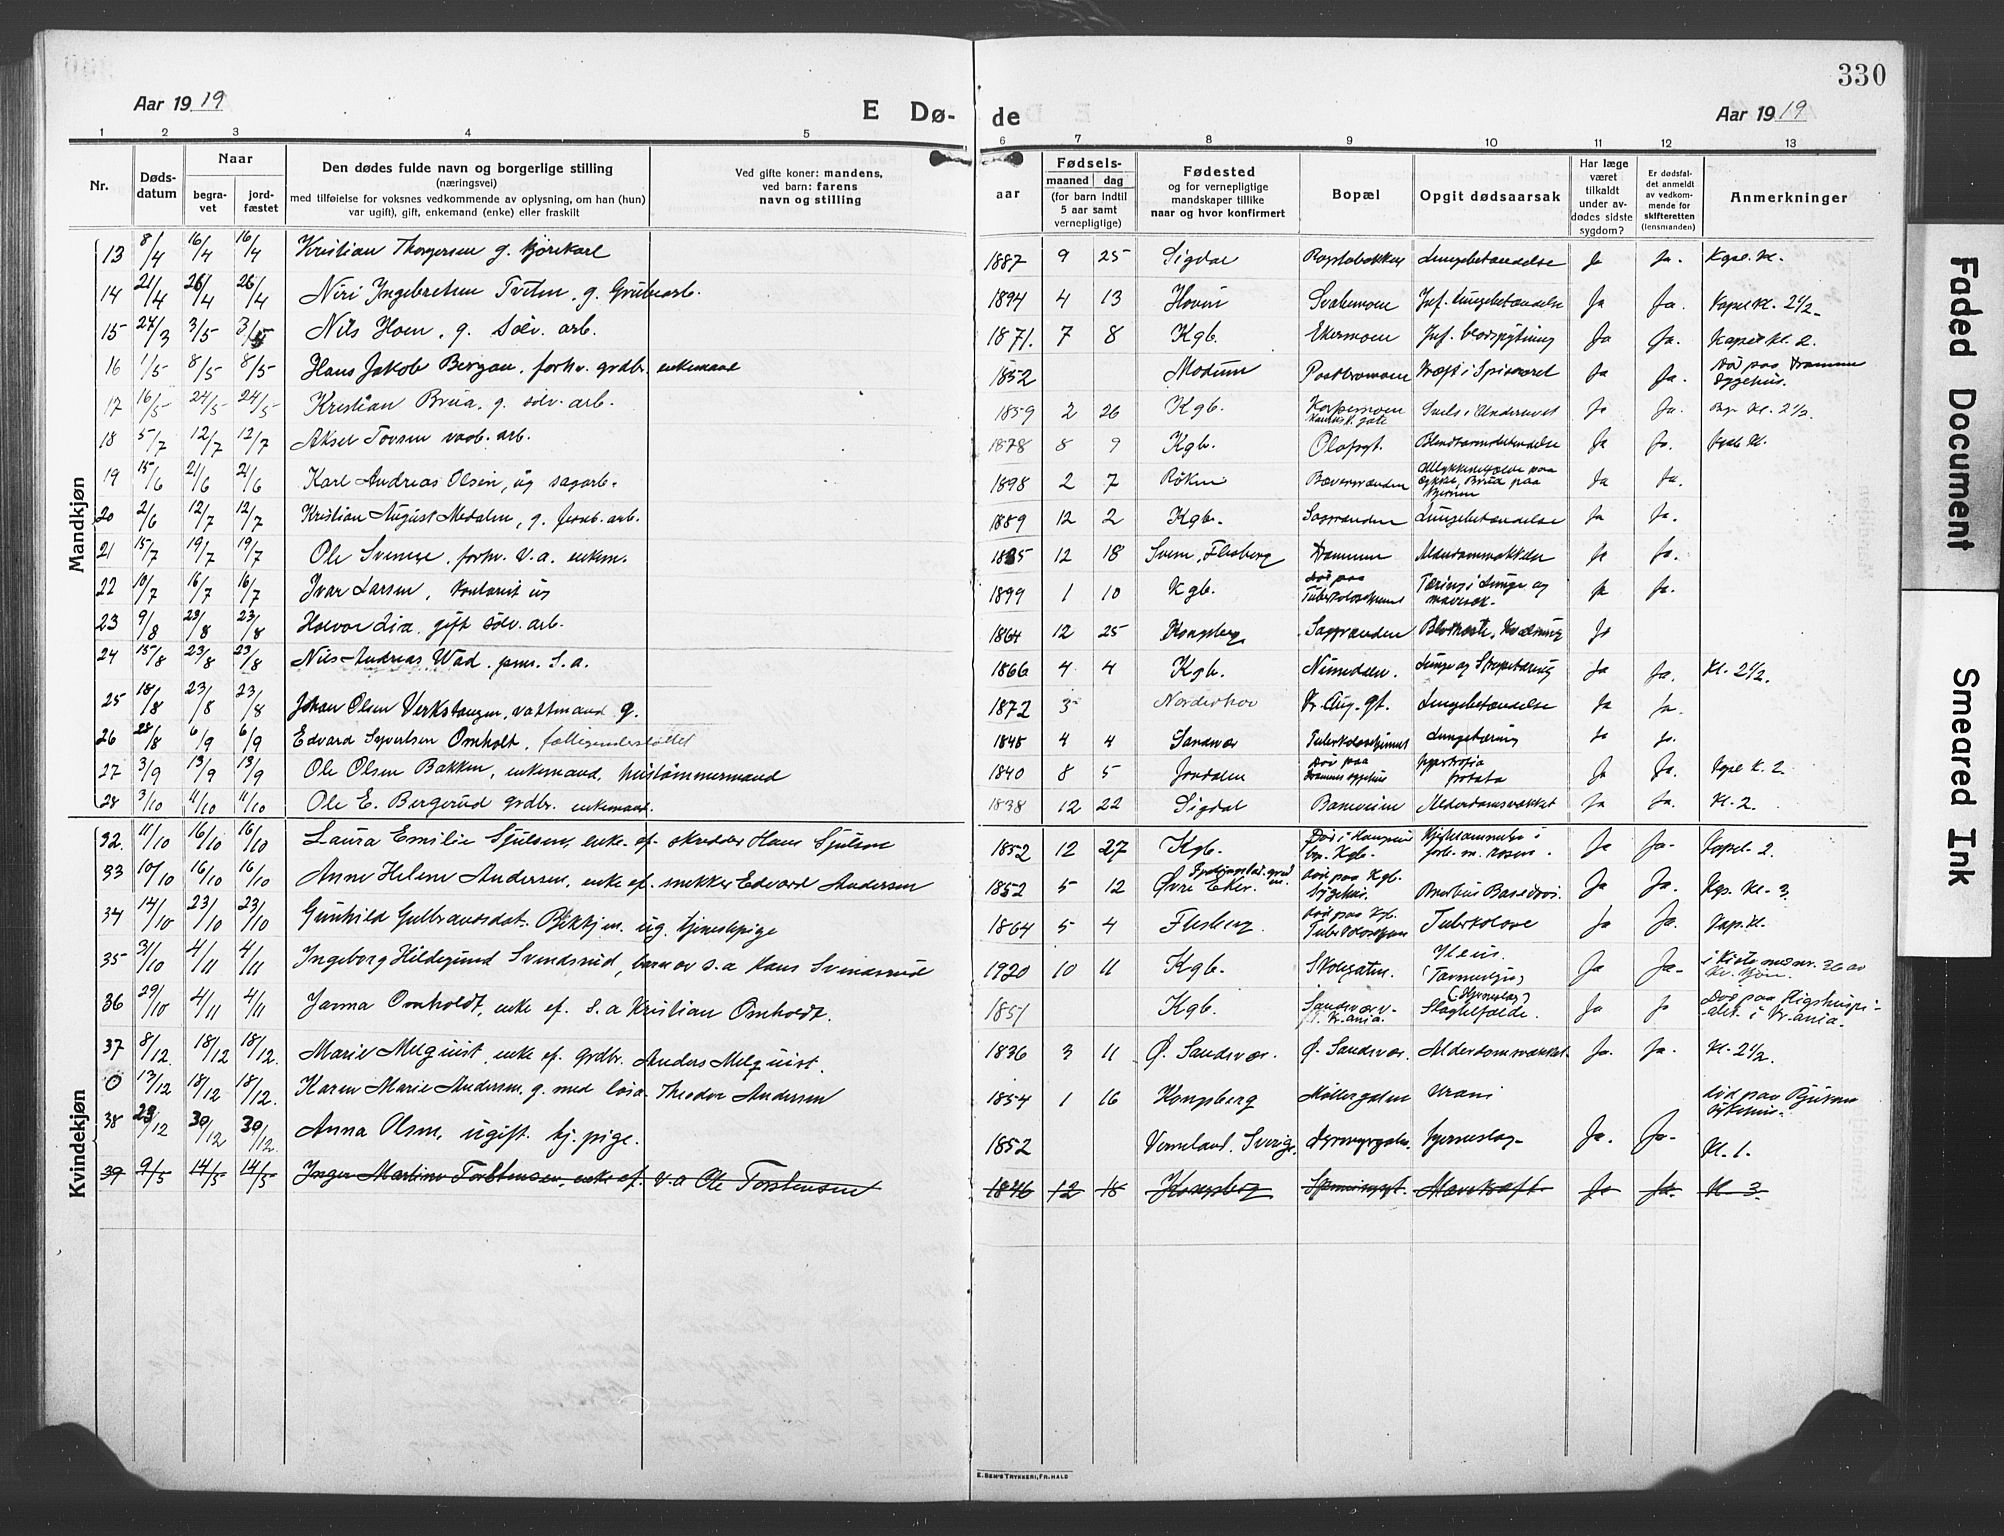 330
Aar 1919
E Dø-
de
Aar 1919
1 2 3 4 5 6 7 8 9 10 11 12 13
Nr.
Døds-
datum
Naar
begra-
vet
jord-
fæstet
Den dødes fulde navn og borgerlige stilling
(næringsvei)
med tilføielse for voksnes vedkommende av oplysning, om han (hun)
var ugift), gift, enkemand (enke) eller fraskilt
Ved gifte koner: mandens,
ved barn: farens
navn og stilling
aar
Fødsels-
maaned dag
(for barn indtil
5 aar samt
vernepligtige)
Fødested
og for vernepligtige
mandskaper tillike
naar og hvor konfirmert
Bopæl
Opgit dødsaarsak
Har læge
været
tilkaldt
under av-
dødes sidste
sygdom?
Er dødsfal-
det anmeldt
av vedkom-
mende for
skifteretten
(lensmanden)
Anmerkninger
Mandkjøn
13 8/4 16/4 16/4 Kristian Thorgersen g. kjørekarl 1887 9 25 Sigdal Lungebetændelse Ja Ja. Kapel. Kl.
14 21/4 26/4 26/4 Niri Ingebretsen Tveten, g. Grubearb. 1894 4 13 Hovin Svabemoen Inf. Lungebetændelse Ja Ja. Kapel Kl. 2 1/2
15 27/3 3/5 3/5 Nils Hoen, g. sølv. arb. 1871. 7 8 Kgb. Ekermoen Inf. blodspytning Ja Ja. Kapel Kl. 2.
16 1/5 8/5 8/5 Hans Jakob Bergan, forhv. grdbr. enkemand 1852 Modum Kræft i Spiserøret Ja Ja. Død paa Drammen sygehus.
17 16/5 24/5 24/5 Kristian Brua, g. sølv. arb. 1859 2 26 Kgb. Ja Ja. Kl. 2 1/2.
18 5/7 12/7 12/7 Aksel Tovsen arb. 1878 8 9 Kgb. Olafsgt. Blindtarmsbetændelse Ja Ja.
19 15/6 21/6 21/6 Karl Andreas Olsen, ug sagarb. 1898 2 7 Røken Ja Ja.
20 2/6 12/7 12/7 Kristian August Medalen, g. Jernb. arb. 1889 12 2 Kgb. Saggrenden Lungebetændelse Ja Ja.
21 15/7 19/7 19/7 Ole Svenne, forhv. v.a. enkem. 1835 12 18 Svene, Flesberg Drammen Alderdomssvakhet Ja Ja.
22 10/7 16/7 16/7 Ivar Larsen, kontorist ug 1899 1 10 Kgb. Død paa Tuberkulosehjemmet Tæring i Lunge og mavesæk. Ja Ja.
23 9/8 23/8 23/8 Halvor Lia, gift sølv. arb. 1864 12 25 Kongsberg Saggrenden Blodhoste, Kvælning Ja
24 15/8 23/8 23/8 Nils Andreas Wad. pens. S.a. 1866 4 4 Kgb. Numedalen. Lunge og Strupetæring Ja Ja. Kl. 2 1/2.
25 18/8 23/8 23/8 Johan Olsen Verkstangen, vaktmand g. 1872 3 Norderhov Kr. Aug. gt. Lungebetændelse Ja Ja.
26 28/8 6/9 6/9 Edvard Syvertsen Omholt, fattigunderstøttet 1848 4 4 Sandsvær Tuberkulosehjemmet Lungetæring Ja Ja.
27 3/9 13/9 13/9 Ole Olsen Bakken, enkemand, hustømmermand 1840 8 5 Jondalen Død paa Drammens sygehus Hypertrofia prostata Ja Ja. Kapel Kl. 2
28 3/10 11/10 11/10 Ole E. Bergerud grdbr. enkemand. 1838 12 22 Sigdal Baneveien Alderdomssvakhet Ja Ja. Kl. 2.
Kvindekjøn
32. 11/10 16/10 16/10 Laura Emilie Sjulsen, enke ef. skrædder Hans Sjulsen 1852 12 27 Kgb. Ja Ja. Kapel. 2.
33 10/10 16/10 16/10 Anne Helene Andersen, enke ef. snekker Edvard Andersen 1852 5 12 Øvre Eker. Død paa Kgb. Sygehus. Morbus Basedowi. Ja Ja. Kap. Kl. 3.
34 14/10 23/10 23/10 Gunhild Gulbrandsdat. ug. tjenestepige 1864 5 4 Flesberg. Død paa Kgb. Tuberkulose Ja Ja. Kap. Kl.
35 31/10 4/11 4/11 Ingeborg Hildegund Svendsrud, barn av S.a Hans Svendsrud 1920 10 11 Kgb. Skolegaten. Ileus. (Tarmslyng) Ja Ja. i kiste med nr. 36 av
36 29/10 4/11 4/11 Janna Omholdt, enke ef. S.a Kristian Omholdt. 1851 Kgb. Sandsvær (Hjerneslag) Slagtilfælde. Ja Ja Død paa Rigshospitalet i Kr.ania.
37 8/12 18/12 18/12. Marie Melquist, enke ef. grdbr. Anders Melquist. 1836 3 11 Ø. Sandsvær. Ø. Sandsvær. Alderdomssvakhet Ja. Ja. Kl. 2 1/2.
0 13/12 18/12 18/12. Karen Marie Andersen, g. med Theodor Andersen 1854 1 16 Kongsberg Møllergaten Uræmi Død paa Rjukan sykehus.
38 23/12 30/12 30/12. Anna Olsen, ugift. tj. pige. 1852 Vermeland, Sverige. Hjerneslag Ja. Ja. Kl. 1.
39 9/5 14/5 14/5 Inger Martine Torstensen, enke ef. v.a Ole Torstensen 1846 12 18 Kongsberg Mavekræft Ja Ja. Kl. 3.
E. SEM'S TRYKKERI, FR.HALD
Faded Document
Smeared Ink